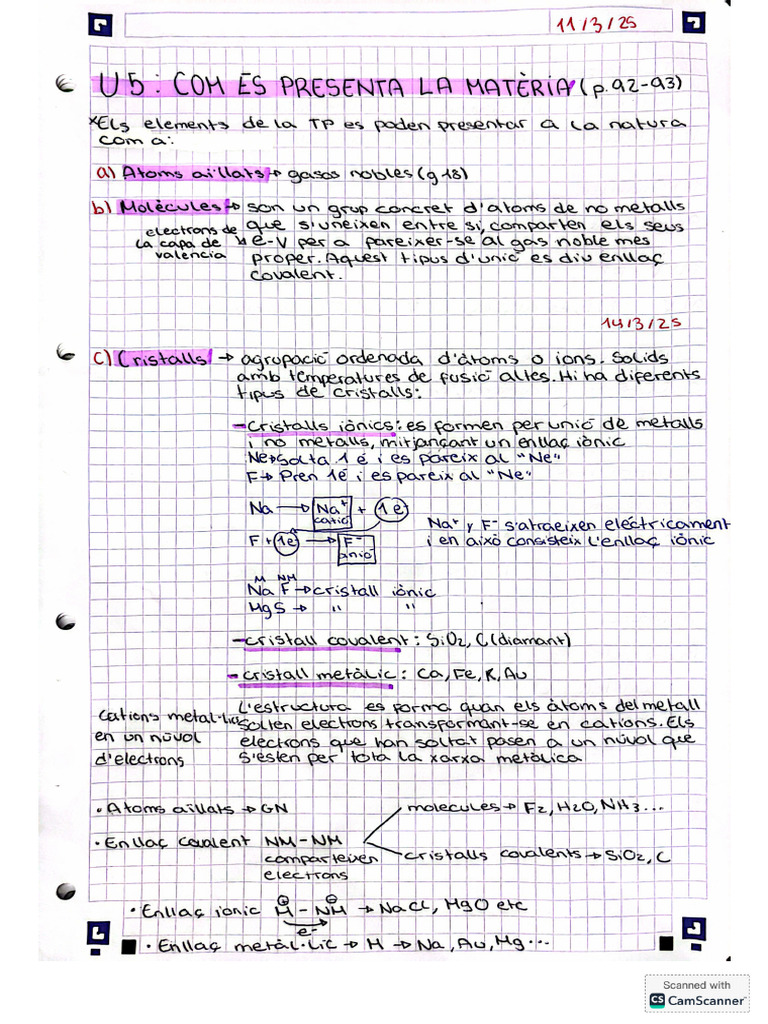 11/3/25
U5: COM ES PRESENTA LA MATÈRIA (p.92-93)
*Els elements de la TP es poden presentar a la natura
com a:
a) Atoms aïllats → gasos nobles (g 18)
b) Molècules → son un grup concret d'atoms de no metalls
que s'uneixen entre si, comparten els seus
electrons de la capa de valencia ↘ e-V per a pareixer-se al gas noble mes
proper. Aquest tipus d'unió es diu enllaç
covalent.
14/3/25
c) Cristalls → agrupació ordenada d'àtoms o ions. Solids
amb temperatures de fusió altes. Hi ha diferents
tipus de cristalls:
- Cristalls iònics: es formen per unió de metalls
i no metalls, mitjançant un enllaç iònic
Ne → Solta 1 é i es pareix al "Ne"
F → Pren 1é i es pareix al "Ne"
Na → Na⁺ + 1é
catió
F + 1é → F⁻
anió
Na⁺ y F⁻ s'atraeixen eléctricament
i en això consisteix l'enllaç iònic
M NM
Na F → cristall iònic
MgS → " "
- cristall covalent: SiO2, C (diamant)
- cristall metàlic: Ca, Fe, K, Au
L'estructura es forma quan els àtoms del metall
solten electrons transformant-se en cations. Els
electrons que han soltat pasen a un núvol que
s'estén per tota la xarxa metàlica
Cations metal·lics
en un núvol
d'electrons
• Atoms aïllats → GN
• Enllaç covalent NM-NM
comparteixen
electrons
molecules → F2, H2O, NH3...
cristalls covalents → SiO2, C
• Enllaç ionic M⊕ - NM⊖ → NaCl, MgO etc
e-
• Enllaç metàl·lic → M → Na, Au, Mg...
Scanned with
CS CamScanner